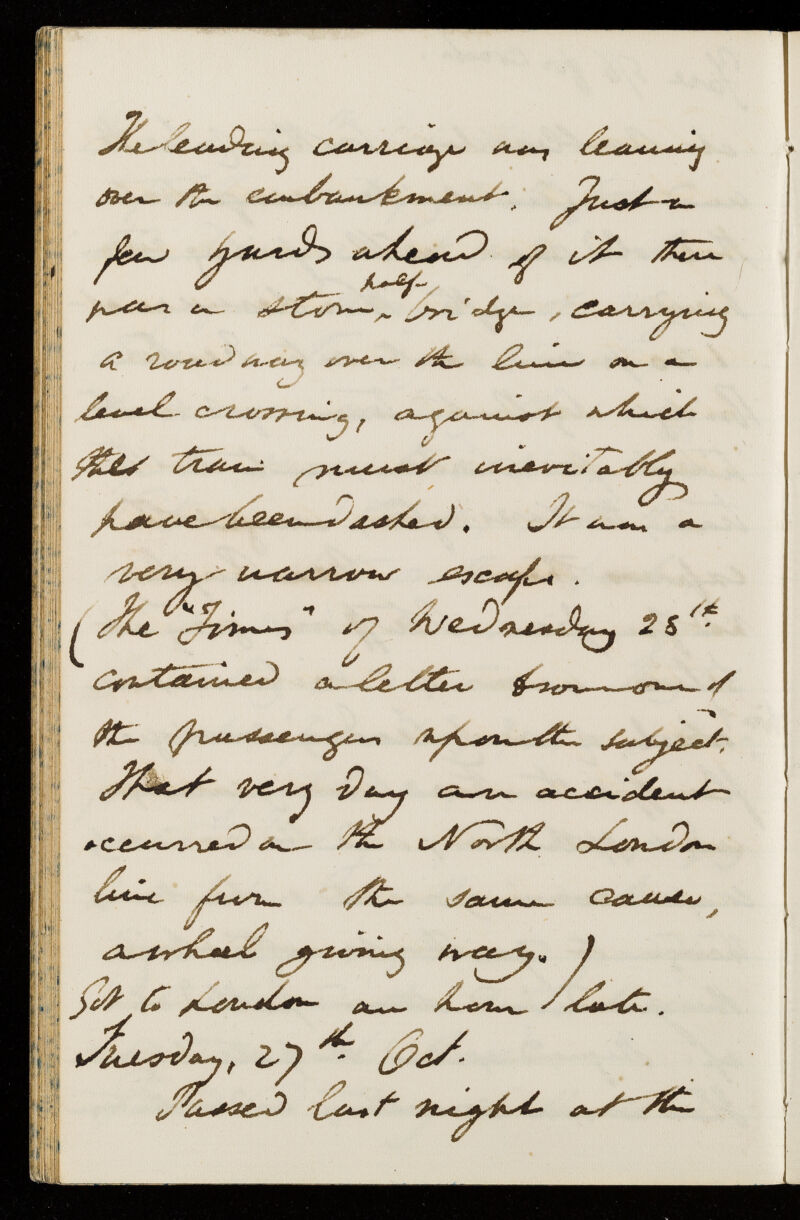 The leading carriage was leaning
over the embankment. Just a
few yards ahead of it there
half-
was a stone bridge, carrying
a roadway over the line on a
level crossing, against which
the train must inevitably
have been dashed. It was a
very narrow escape.
(The "Times" of Wednesday 28th.
contained a letter from one of
the passengers upon the subject.
That very day an accident
occurred on the North London
line from the same cause,
a wheel giving way.)
Got to London an hour late.
Tuesday, 27th. Oct.
Passed last night at the